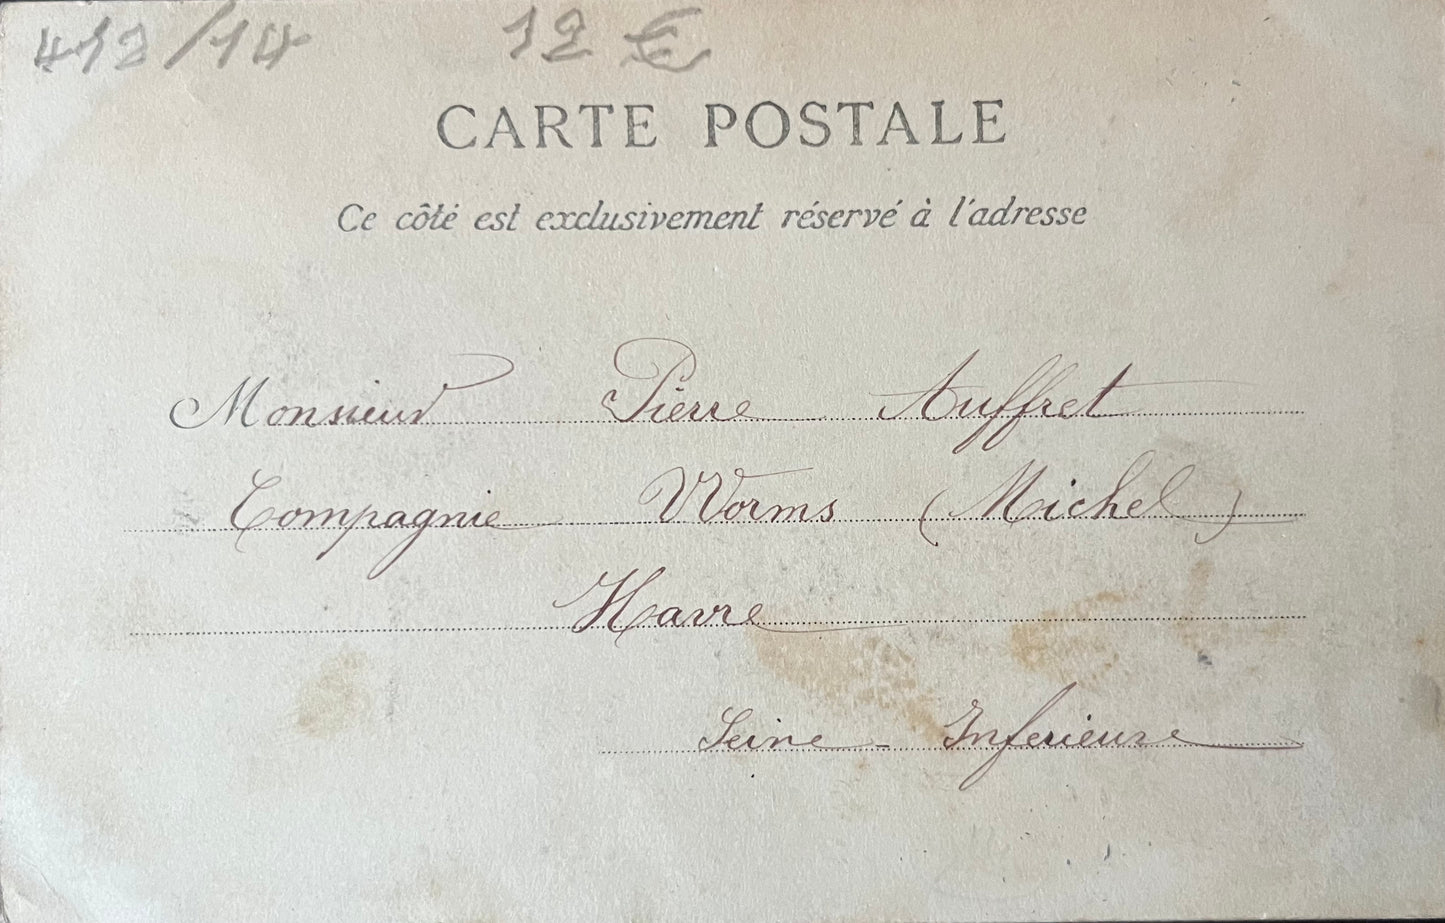 412/14 12 €
CARTE POSTALE
Ce côté est exclusivement réservé à l'adresse
Monsieur Pierre Auffret
Compagnie Worms (Michel)
Havre
Seine-Inferieure